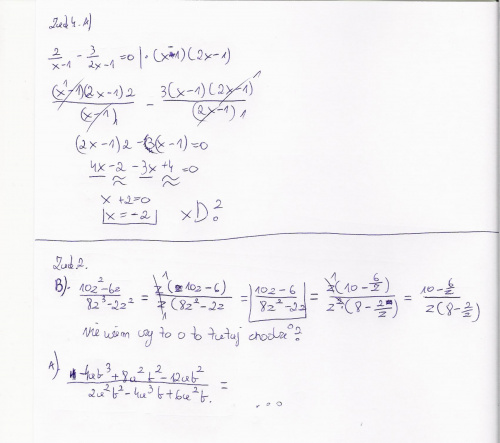 Zad 4. A)
2/(x-1) - 3/(2x-1) = 0 | · (x-1)(2x-1)
(x-1)(2x-1)2/(x-1) - 3(x-1)(2x-1)/(2x-1)
(2x-1)2 - 3(x-1) = 0
4x-2 - 3x+4 = 0
x+2=0
x = -2 xD ?
Zad 2.
B). (10z²-6z)/(8z³-2z²) = z(10z-6)/z(8z²-2z) = (10z-6)/(8z²-2z) = z(10-6/z)/z·(8-2/z) = (10-6/z)/z(8-2/z)
nie wiem czy to o to tutaj chodzi?
A) (4ab³+8a²b²-12ab²)/(2a²b²-4a³b+6a²b) =
...